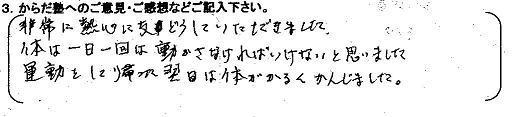 3. からだ塾へのご意見・ご感想などご記入下さい。
非常に熱心に していただきました。
体は一日一回は動かさなければいけないと思いました
運動をして帰った翌日は体がかるくかんじました。